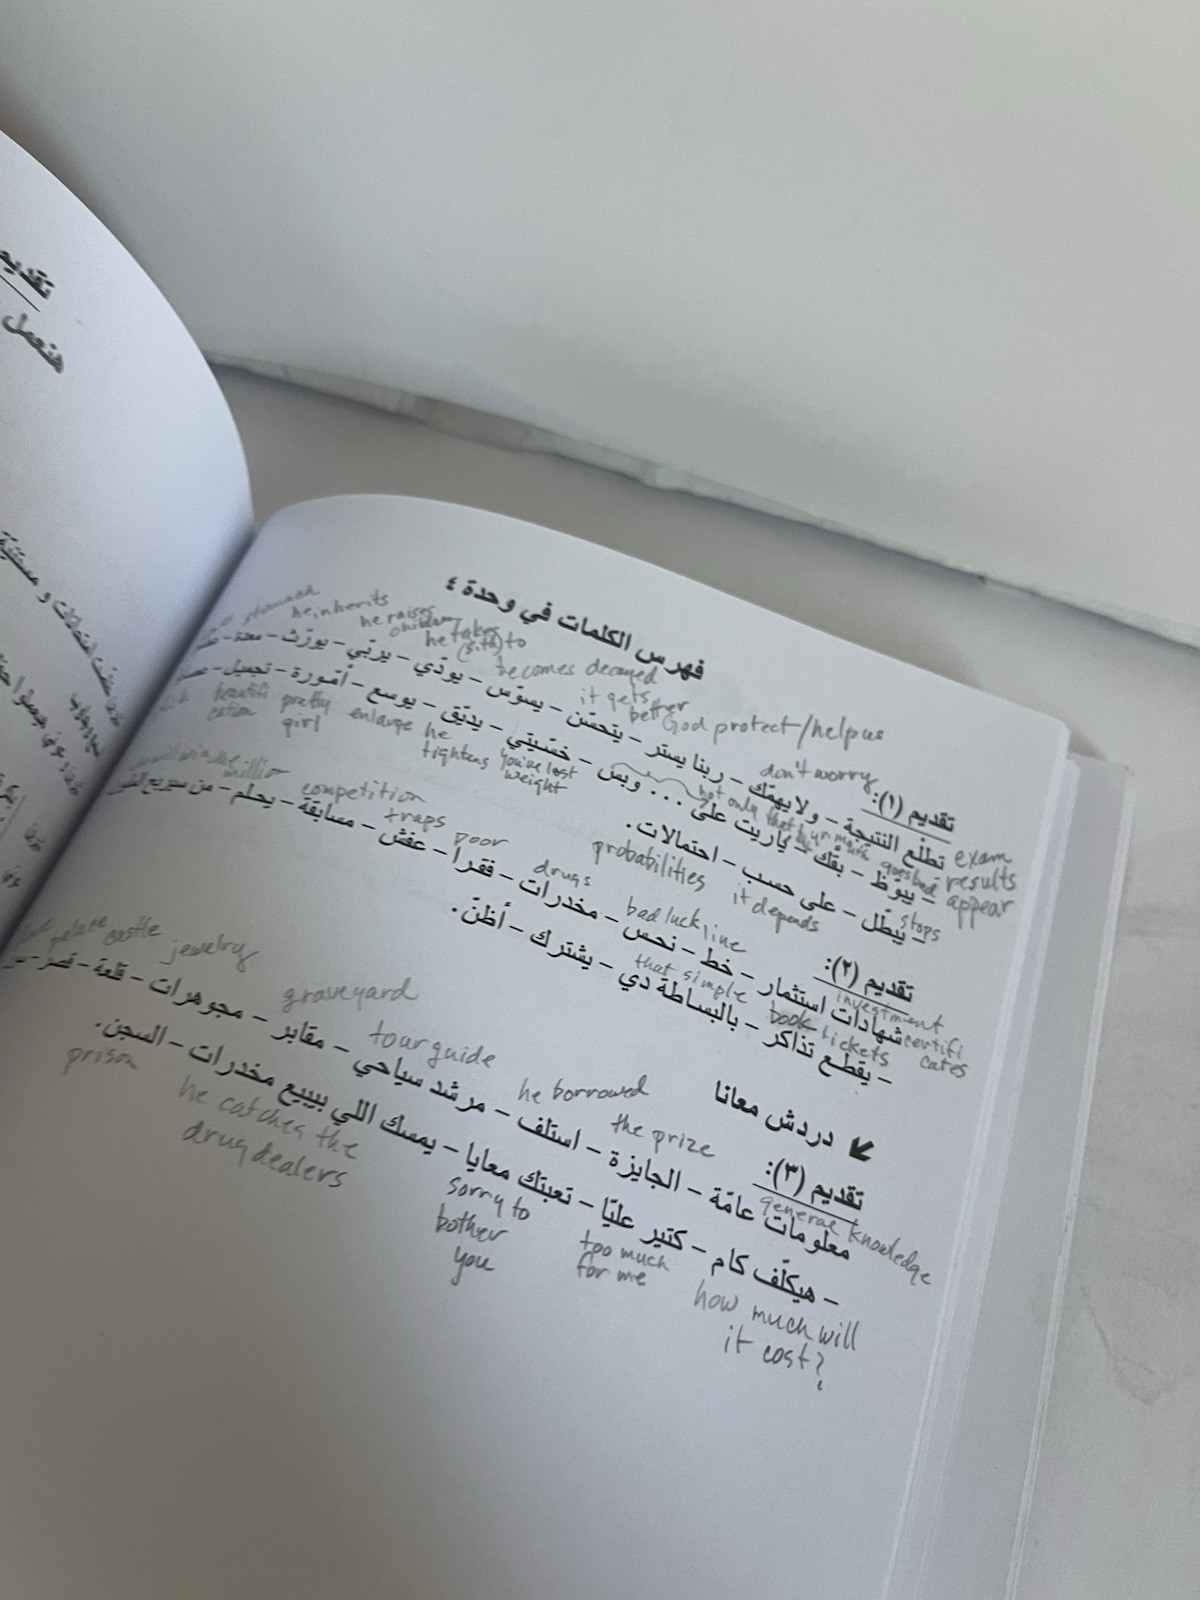 تقديم
هنعمل
فهرس الكلمات في وحدة ٤
stomach he inherits he raises children he takes to (sth) becomes decayed it gets better God protect/help us don't worry
تقديم (١):
تطلع النتيجة – ولا يهمّك – ربنا يستر – يتحسّن – يسوّس – يودّي – يربّي – يورّث – معدة –
exam results appear
beautification pretty girl enlarge he tightens you've lost weight not only that but your mouth goes bad
– يبوّظ – بقّك – ياريت على ... وبس – خسّيتي – يديّق – يوسع – أمّورة – تجميل –
stops it depends probabilities
– يبطّل – على حسب – احتمالات.
million competition traps poor drugs bad luck line
تقديم (٢):
شهادات استثمار – خط – نحس – مخدرات – فقرا – عفش – مسابقة – يحلم – من سيربح
investment certificates
that simple book tickets
– يقطع تذاكر – بالبساطة دي – يشترك – أظنّ.
دردش معانا
palate castle jewelry graveyard tour guide he borrowed the prize
تقديم (٣):
general knowledge
معلومات عامّة – الجايزة – استلف – مرشد سياحي – مقابر – مجوهرات – قلعة – قصر –
– هيكلّف كام – كتير عليّا – تعبتك معايا – يمسك اللي بيبيع مخدرات – السجن.
how much will it cost? too much for me sorry to bother you he catches the drug dealers prison